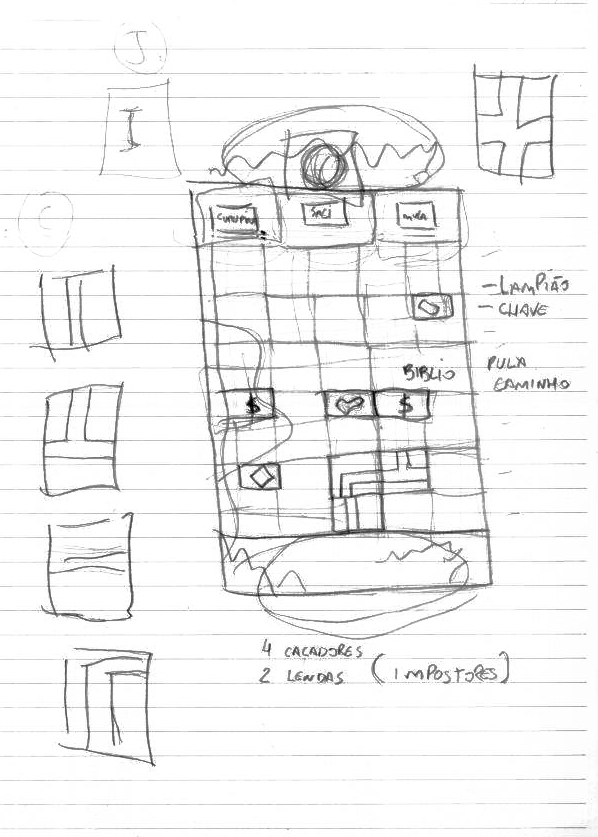 J.
I
C
CURUPIRA
SACI
MULA
- LAMPIÃO
- CHAVE
BIBLIO
PULA
CAMINHO
$
$
4 CAÇADORES
2 LENDAS (IMPOSTORES)